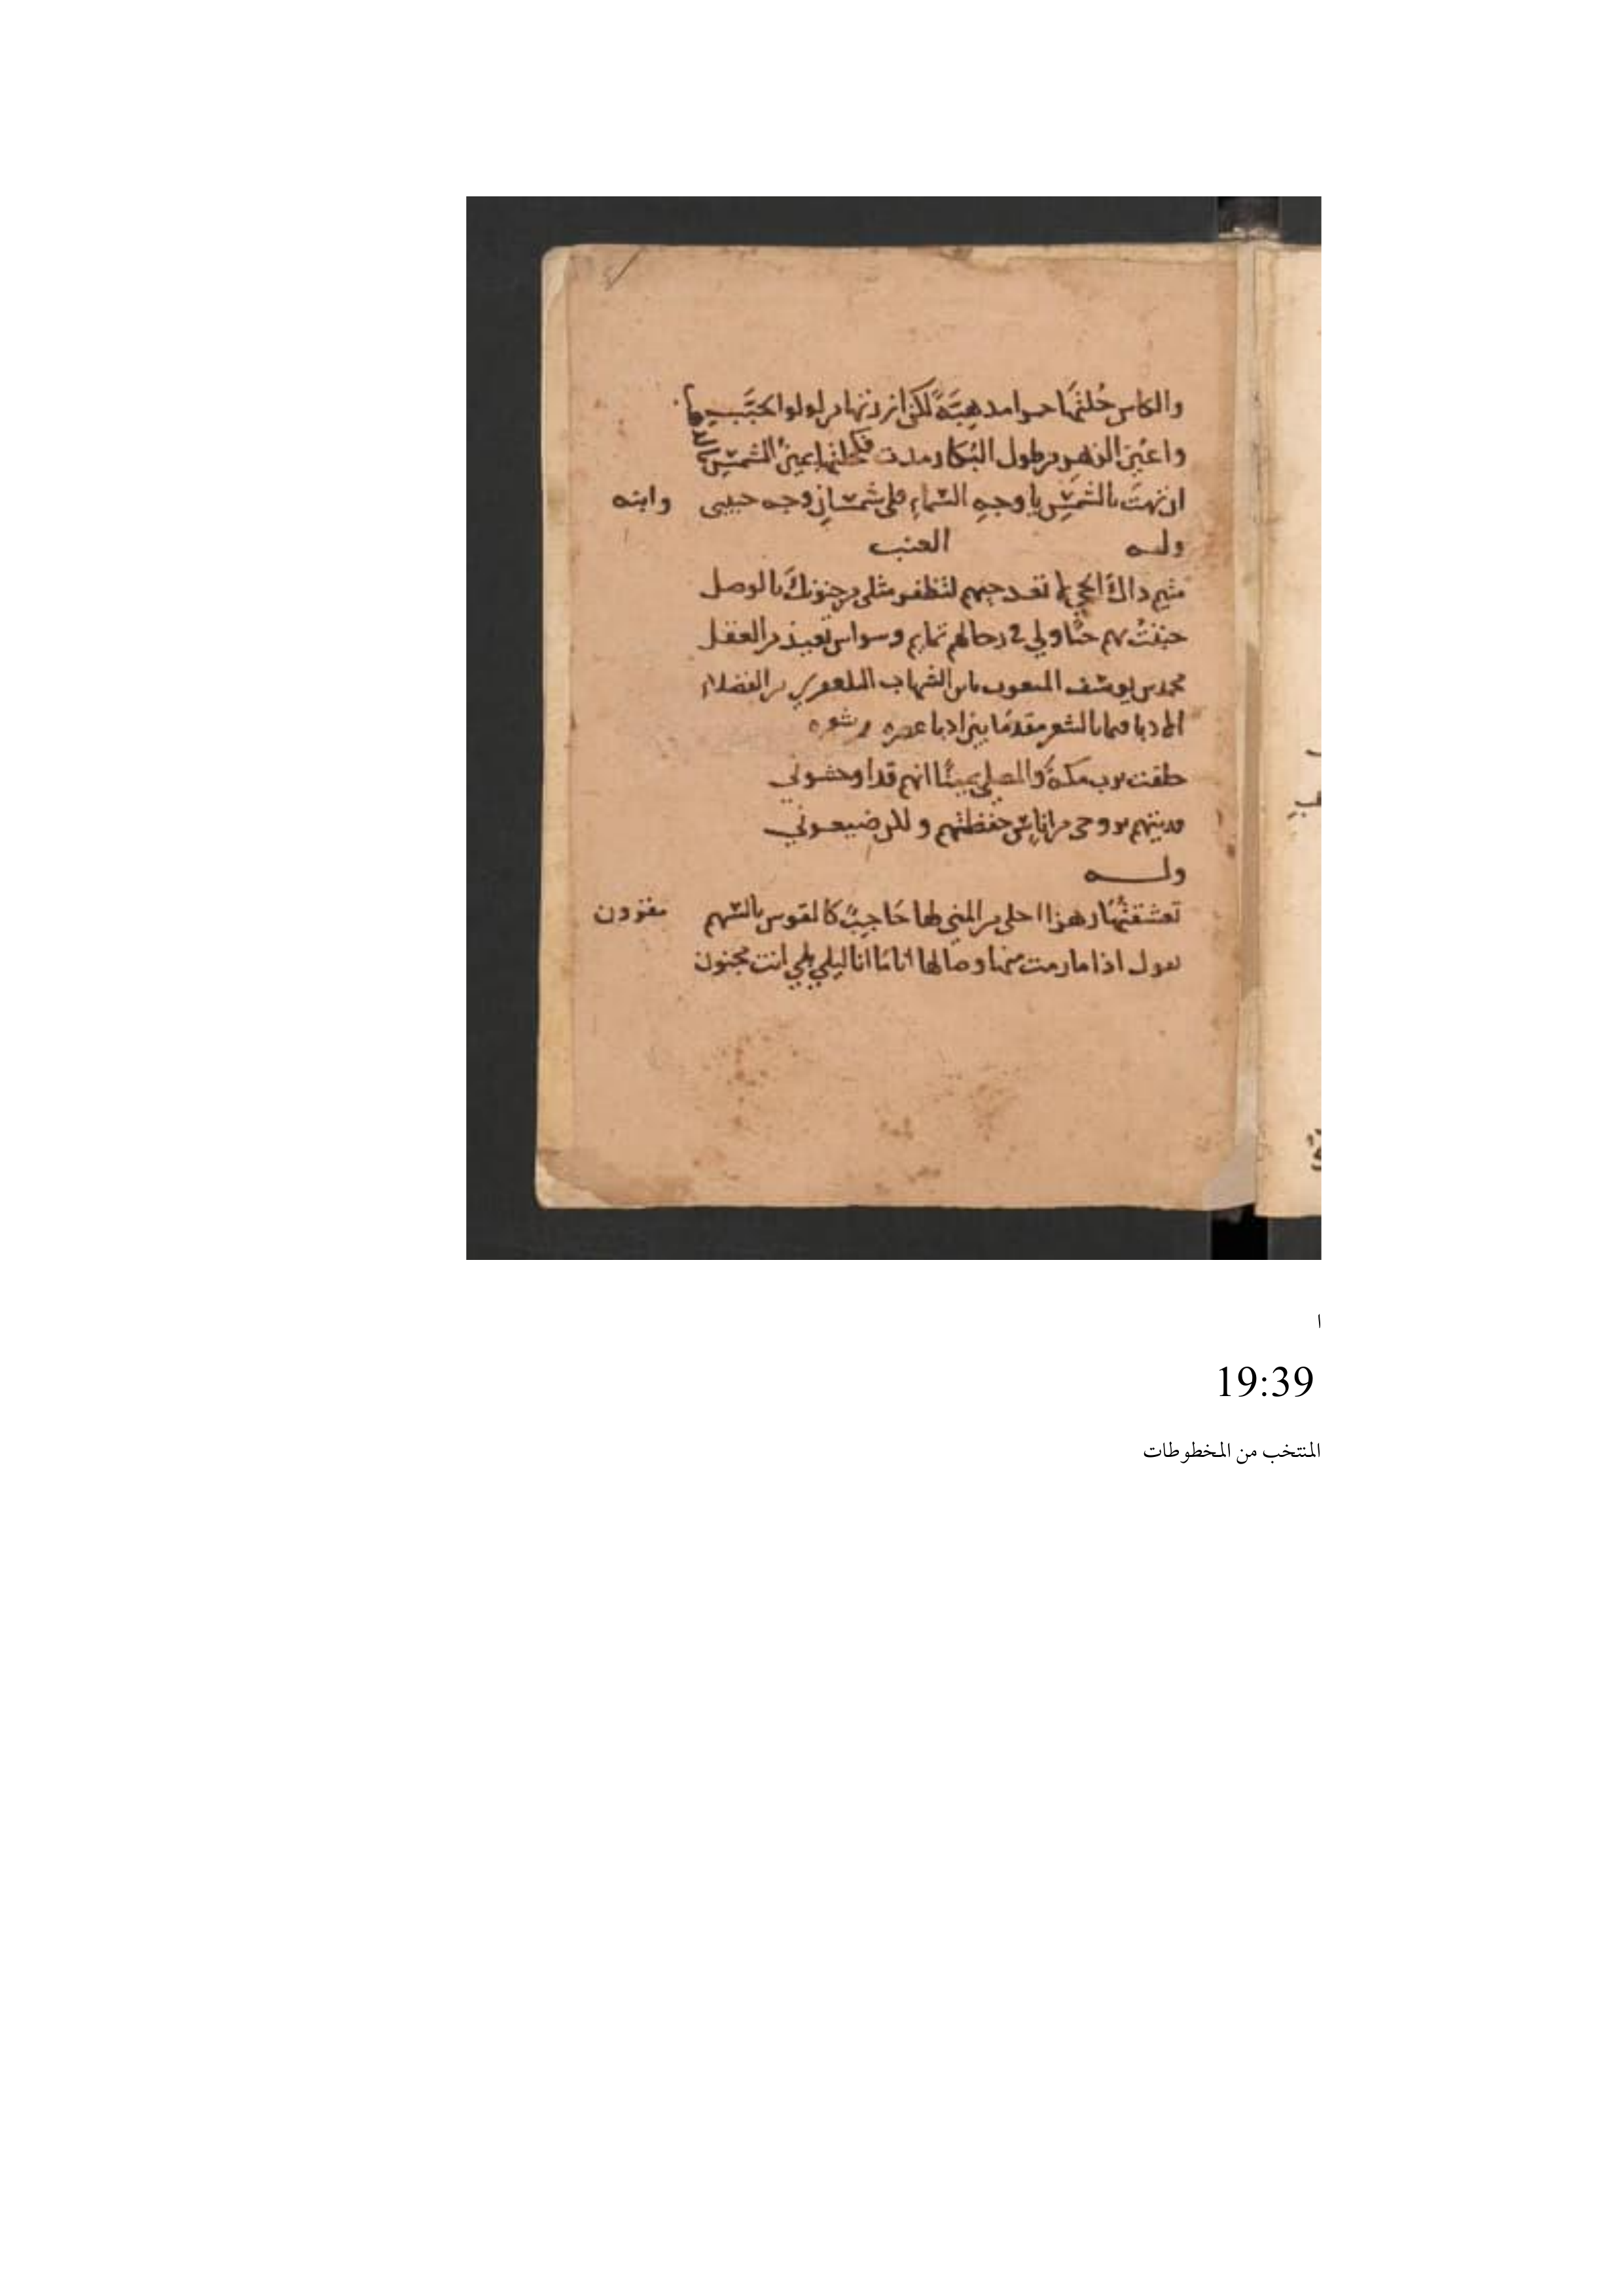 والكاس خلتها حرا مدهبة لكن ازرتها من لولوا الحبب
واعين الزهر من طول البكا رمدت فكحلتها يمين الشمس
ان تهت بالشمس يا وجه السماء فلي شمسان وجه حبيبي وابنه
ولـه العنب
متيم ذاك الحي نقد جهم لتظفر مثلي من جنونك بالوصل
جننت بهم حبا ولي في رحالهم تمايم وسواس تعيذ من العقل
محمد بن يوسف المنعوت بابن الشهاب التلعفري من الفضلاء
الادبا بالشعر مقدما بين ادبا عصره من شعره
حلفت برب مكة والمصلى يمينا انهم قد اوحشوني
فديتهم بروحي من اناس حفظتهم ولكن ضيعوني
ولـــه
تعشقتها احلى من المنى لها حاجب كالقوس بالسهم مقرون
تقول اذا ما رمت منها وصالها انا ما انا ليلى بلى انت مجنون
ا
19:39
المنتخب من المخطوطات